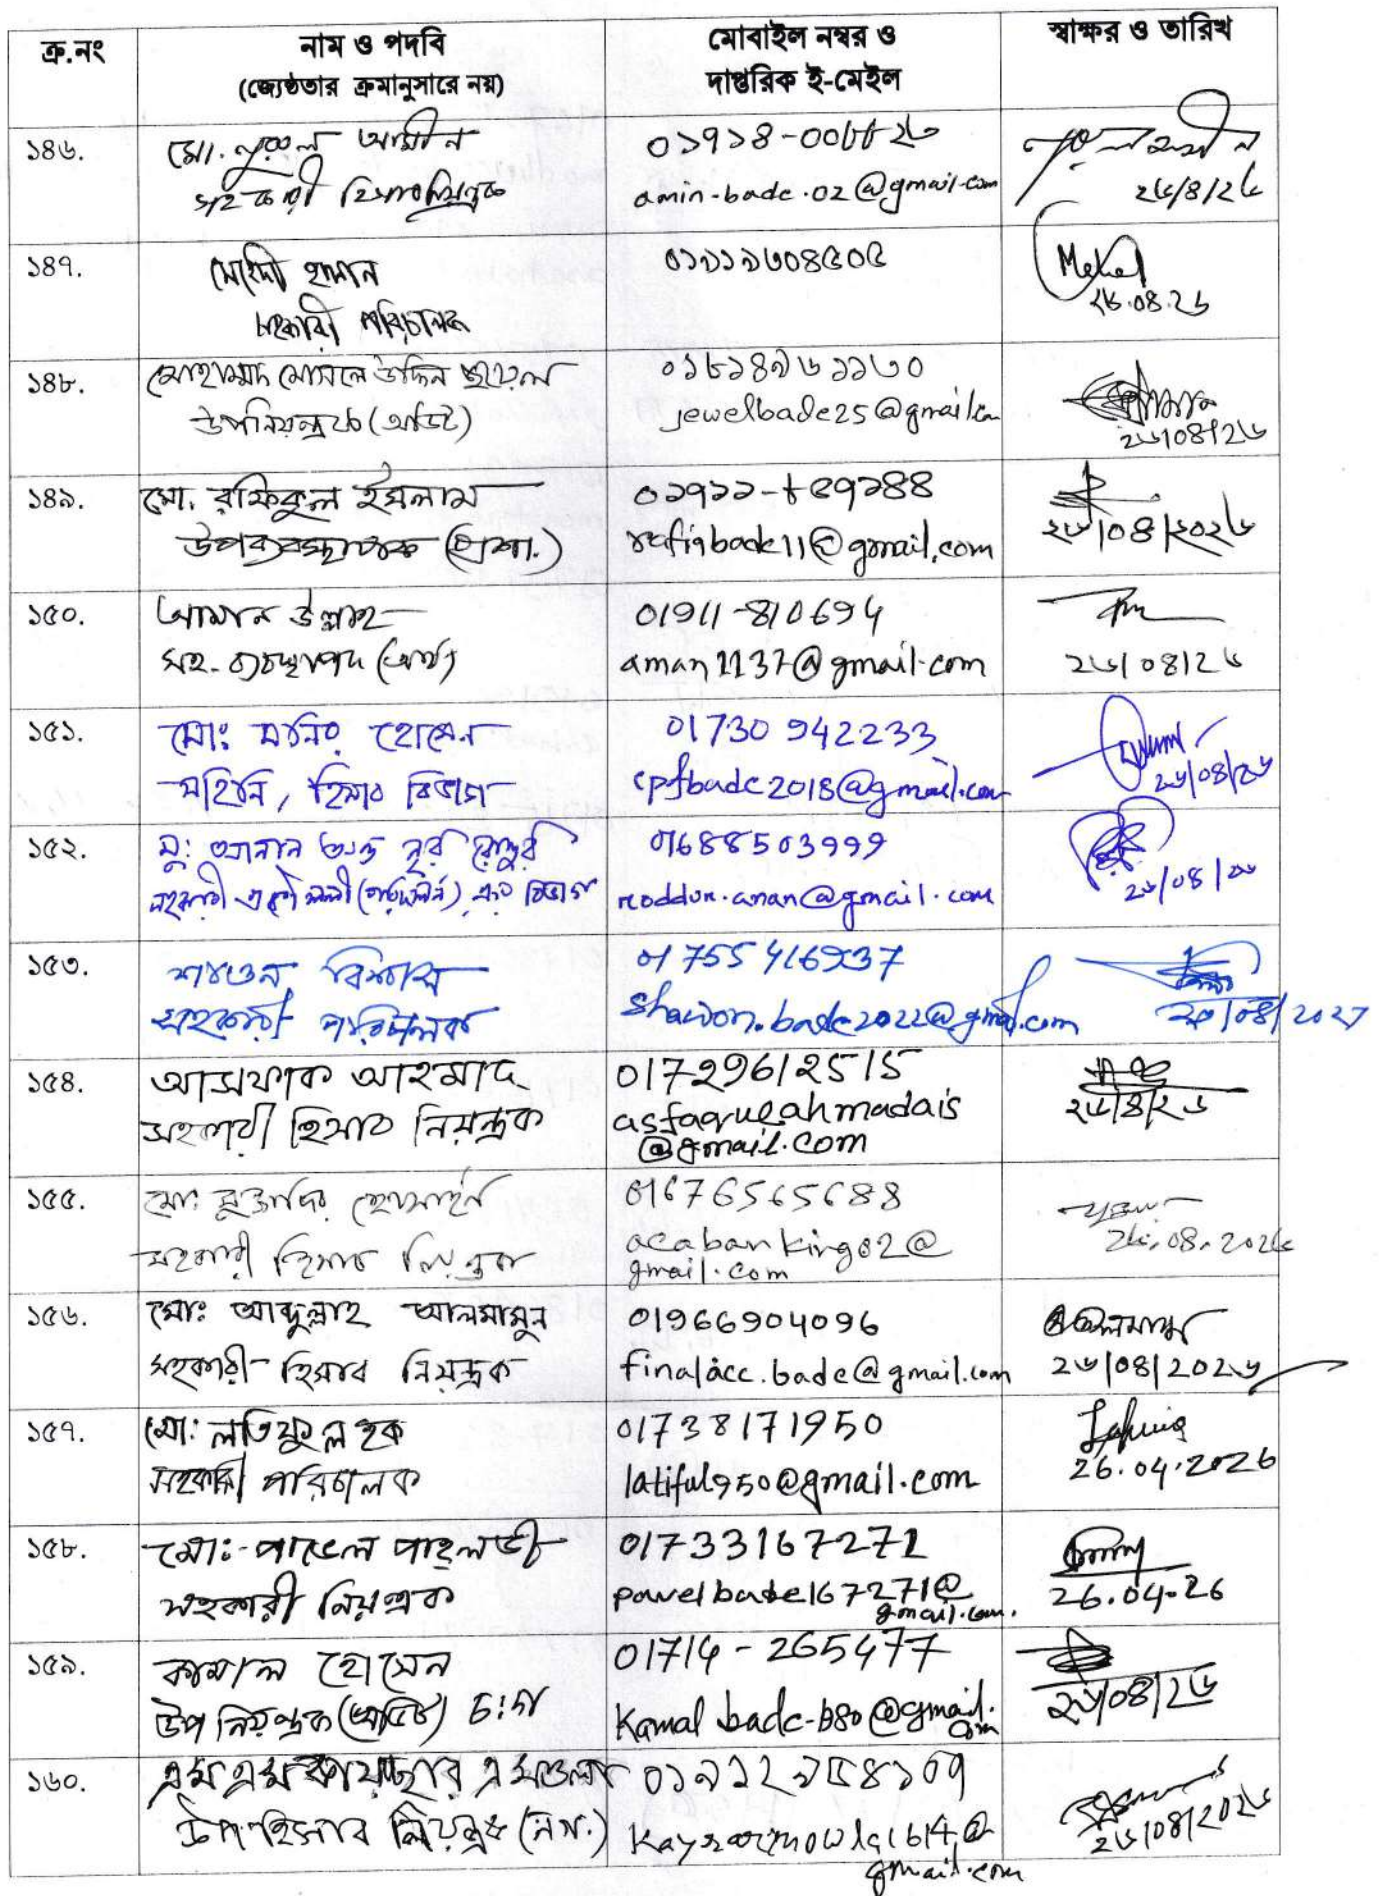 ক্র.নং
নাম ও পদবি
(জ্যেষ্ঠতার ক্রমানুসারে নয়)
মোবাইল নম্বর ও
দাপ্তরিক ই-মেইল
স্বাক্ষর ও তারিখ
১৪৬.
মো. নুরুল আমীন
সহকারী হিসাবনিয়ন্ত্রক
amin-badc.02@gmail.com
২৬/৪/২৬
১৪৭.
মেহেদী হাসান
সহকারী পরিচালক
২৬.০৪.২৬
১৪৮.
মোহাম্মদ মোসলে উদ্দিন জুয়েল
উপনিয়ন্ত্রক (অডিট)
jewelbadc25@gmail.com
২৬/০৪/২৬
১৪৯.
মো. রফিকুল ইসলাম
উপব্যবস্থাপক (প্রশা.)
০১৭১১-৮৫৭১৪৪
rafiqbadc11@gmail.com
২৬/০৪/২০২৬
১৫০.
আমান উল্লাহ
সহ. ব্যবস্থাপক (অর্থ)
01911-810694
aman1137@gmail.com
২৬/০৪/২৬
১৫১.
মোঃ মনির হোসেন
সহিনি, হিসাব বিভাগ
01730 942233
cpfbadc2018@gmail.com
২৬/০৪/২৬
১৫২.
মু: আনান
সহকারী বিভাগ
01688503999
roddur.anan@gmail.com
২৬/০৪/২৬
১৫৩.
শাওন বিশ্বাস
সহকারী পরিচালক
shawon.badc2022@gmail.com
১৫৪.
আসফাক আহমাদ
সহকারী হিসাব নিয়ন্ত্রক
01729612515
@gmail.com
২৬/৪/২৬
১৫৫.
মো: মুক্তাদির হোসাইন
সহকারী হিসাব নিয়ন্ত্রক
01676565688
acabanking02@
gmail.com
২৬.০৪.২০২৬
১৫৬.
মোঃ আব্দুল্লাহ আলমামুন
সহকারী হিসাব নিয়ন্ত্রক
01966904096
finalacc.badc@gmail.com
২৬/০৪/২০২৬
১৫৭.
মো: লতিফুল হক
সহকারী পরিচালক
01738171950
latiful950@gmail.com
26.04.2026
১৫৮.
মো:- পাভেল পাহলভী
সহকারী নিয়ন্ত্রক
01733167271
pavelbadc167271@
gmail.com.
26.04.26
১৫৯.
কামাল হোসেন
উপ নিয়ন্ত্রক (অডিট) চ:দা
01714-265477
Kamal badc-b80@gmail.
com
২৬/০৪/২৬
১৬০.
এম এম কায়ছার এ মওলা
উপ-হিসাব নিয়ন্ত্রক
gmail.com
২৬/০৪/২০২৬